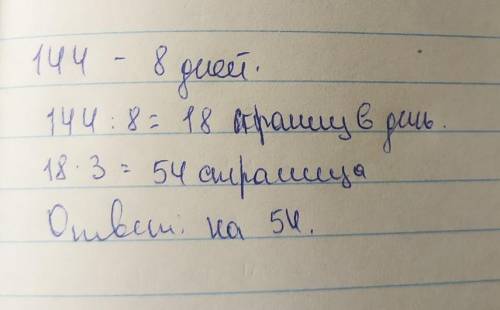 144 - 8 дней.
144 : 8 = 18 страниц в день.
18 · 3 = 54 страница
Ответ: на 54.